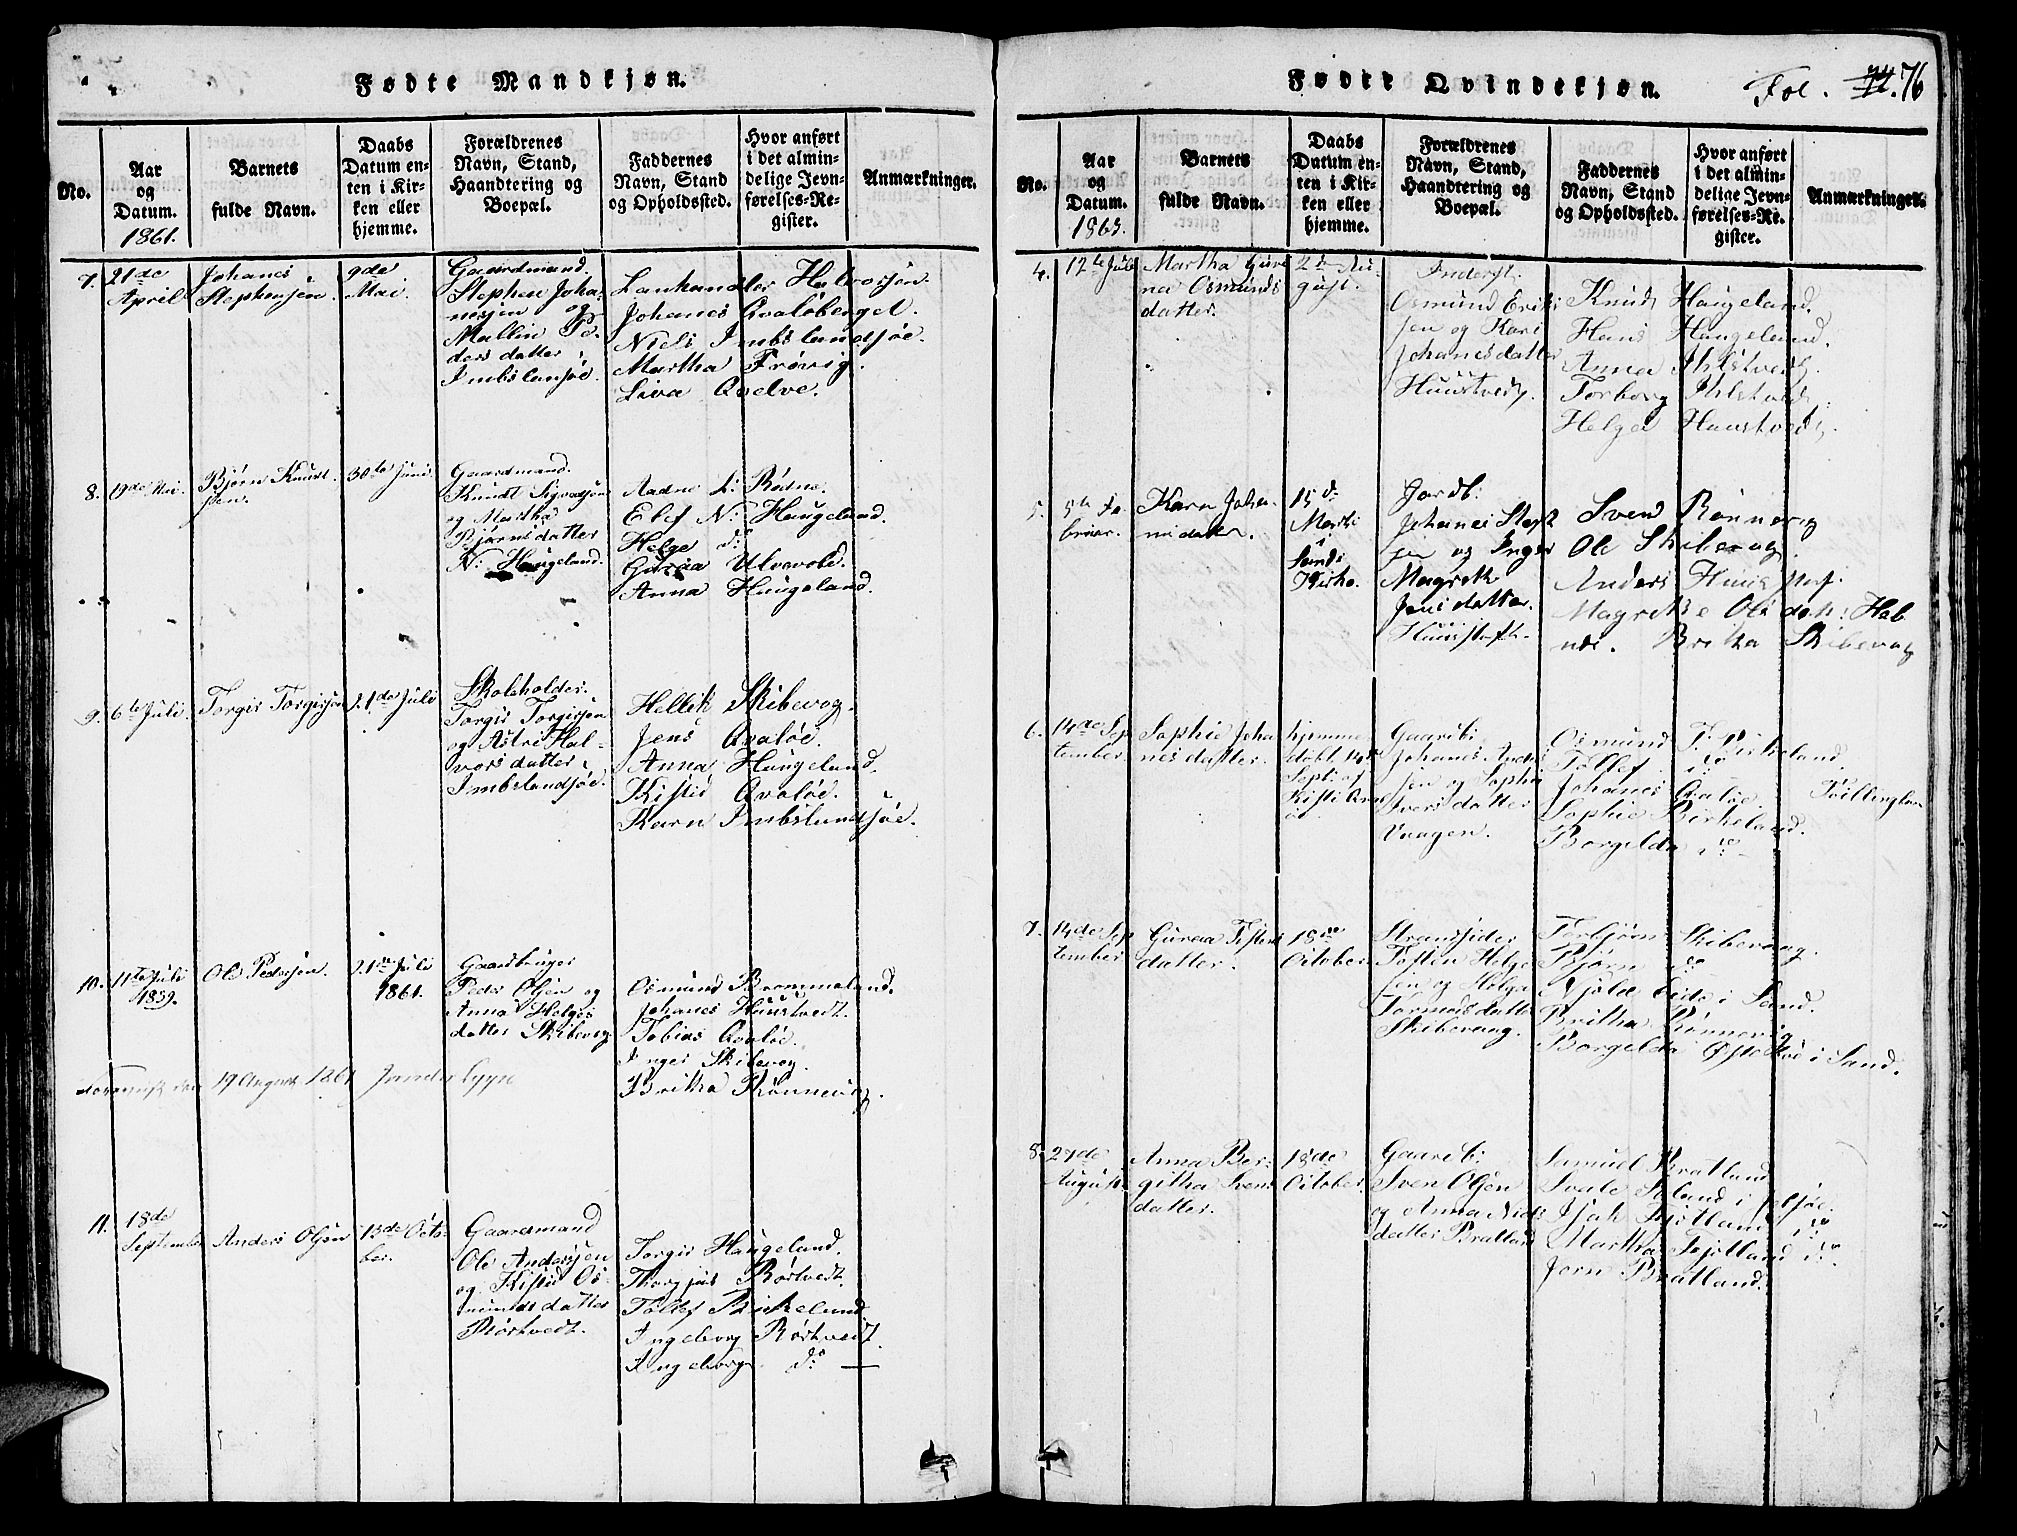 Fødte Mandkjøn.
No.
Aar
og
Datum.
1861.
Barnets
fulde Navn.
Daabs
Datum en-
ten i Kir-
ken eller
hjemme.
Forældrenes
Navn, Stand,
Haandtering og
Boepæl.
Faddernes
Navn, Stand
og Opholdssted.
Hvor anført
i det almin-
delige Jevn-
førelses-Re-
gister.
Anmærkninger.
7.
21de
April
Johanes
Stephensen
9de
Mai
Gaardmand
Stephen Joha-
nesjen og
Mallin Pe-
dersdatter
Imbslansjøe.
Lanhandler Halvorsjen.
Johanes Qvaløberget.
Niels Imbslandsjøe.
Martha Frøvig.
Siva Qvelve.
8.
19de Mai.
Bjørn Knudt-
sen.
30te Juni
Gaardmand.
Knudt Sigvadsjøn
og Martha
Bjørnsdatter
N: Haugeland.
Aadne L: Rødne.
Elef N: Haugeland.
Helge do
Guroa Ulvevold.
Anna Haugeland.
9.
6te Juli.
Torgir Torgirsjen
21de Juli
Skoleholder.
Torgir Torgirsjen
og Astri Hal-
vorsdatter
Imbslandsjøe.
Hellik Skibevog.
Jens Qvaløe.
Anna Haugeland.
Kistid Qvaløe.
Karn Imbslandsjøe.
10.
11te Juli
1859.
Ole Pedersjen.
21de Juli
1861.
Gaardbruger
Peder Olsen og
Anna Helges
datter Skibevog
Osmund Brommeland.
Johanes Huustvedt.
Tobias Qvaløe.
Inger Skibevog.
Britha Rønnevig.
19 August 1861
11.
18de
September
Anders Olsen
13de Octo-
ber.
Gaardmand
Ole Andersjen
og Kistid Os-
mundsdatter
Rørtvedt.
Torgir Haugeland.
Thorgjus Rørtvedt.
Tollef Birkeland
Ingeborg Rørtvedt.
Ingeborg do —
Fødte Qvindekjøn.
Fol. 76
No.
Aar
og
Datum.
1863.
Barnets
fulde Navn.
Daabs
Datum en-
ten i Kir-
ken eller
hjemme.
Forældrenes
Navn, Stand,
Haandtering og
Boepæl.
Faddernes
Navn, Stand
og Opholdssted.
Hvor anført
i det almin-
delige Jevn-
førelses-Re-
gister.
Anmærkninger.
4.
12te Juli
Martha Gure
na Osmunds
datter.
2de Au-
gust.
Inderst.
Osmund Erik-
sen og Kari
Johanesdatter
Huustvedt.
Knudt Haugeland.
Hans Haugeland.
Anna Hilstvedt.
Torborg Hilstvedt.
Helga Huustvedt.
5.
5te Fe-
bruar.
Karn Joha-
nisdatter.
15de
Marts
i
Sands
Kirke.
Jordb:
Johanes Steph
sen og Inger
Magrethe
Jensdatter.
Huustoft.
Svend Rønnevig
Ole Skibevog.
Anders Huustof.
Magrethe Olsdatt: Heb
nes. Britha Skibevog
6.
14de Sep
tember
Sophie Joha
nesdatter.
hjemme
døbt 14de
Sept: af
Kisti Qval
øe
Gaardb:
Johanes Andr
sen og Sophie
Iversdatter
Vaagen.
Osmund T. Birkeland.
Tollef do
Johanes Qvaløe.
Sophie Birkeland.
Borgelda do
Tvillinger
7.
14de Sep
tember
Guroa Tistens
datter.
18de
October
Strandsider
Tosten Helge
sen og Helga
Tormosdatter
Skibevaag.
Torbjørn Skibevaag.
Bjørn do
Njæld Eide i Sand.
Britha Rønnevig
Borgelda Østebø i Sand.
8.
27de
August.
Anna Ber-
githa Svens
datter.
18de
October
Gaardb:
Sven Olsen
og Anna Niels
datter Bratland
Samuel Bratland
Svale Soland i Jelsøe.
Isak Fjotland do
Martha Fjotland do
Jorn Bratland.